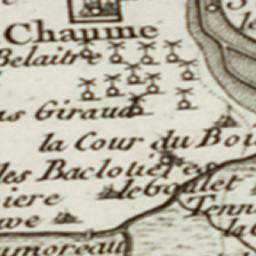 Chaume
Belaitre
as Giraud
la Cour du Bois
les Bacloticres
le goulet
iere
Tenn
we
la
umoreau